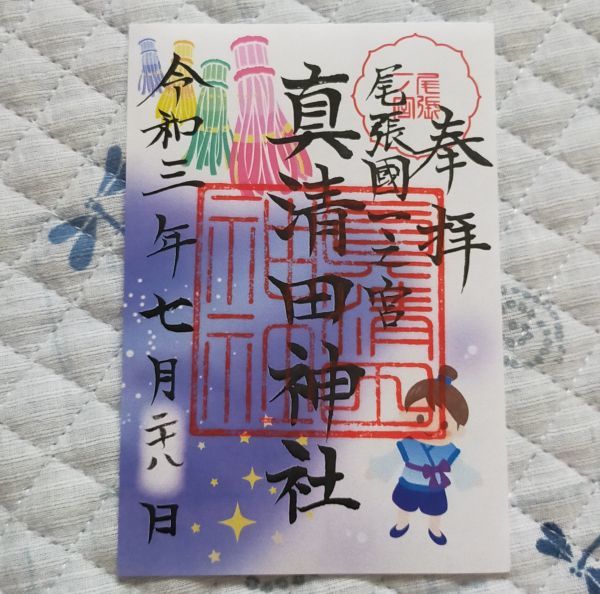 奉拝
尾張
一宮
尾張國一之宮
真清田神社
真清田神社
令和三年七月二十八日